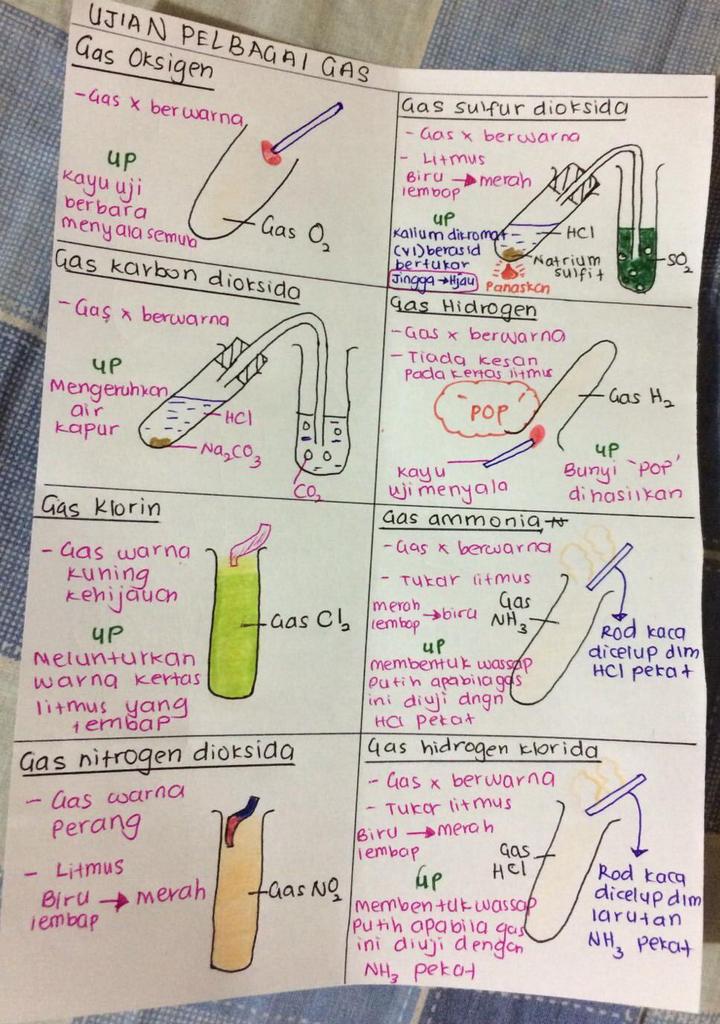 UJIAN PELBAGAI GAS
Gas Oksigen
- Gas x berwarna
UP
Kayu uji
berbara
menyala semula
Gas O₂
Gas sulfur dioksida
- Gas x berwarna
- Litmus
Biru → merah
lembap
UP
Kalium dikromat
(VI) berasid
bertukar
Jingga → Hijau
HCl
Natrium
sulfit
Panaskan
SO₂
Gas karbon dioksida
- Gas x berwarna
UP
Mengeruhkan
air
kapur
HCl
Na₂CO₃
CO₂
Gas Hidrogen
- Gas x berwarna
- Tiada kesan
pada kertas litmus
'POP'
Gas H₂
kayu
uji menyala
UP
Bunyi 'POP'
dihasilkan
Gas klorin
- Gas warna
kuning
kehijauan
UP
Melunturkan
warna kertas
litmus yang
lembap
Gas Cl₂
Gas ammonia
- Gas x berwarna
- Tukar litmus
merah → biru
lembap
Gas
NH₃
UP
membentuk wassap
Putih apabila gas
ini diuji dngn
HCl pekat
Rod kaca
dicelup dlm
HCl pekat
Gas nitrogen dioksida
- Gas warna
perang
- Litmus
Biru → merah
lembap
Gas NO₂
Gas hidrogen klorida
- Gas x berwarna
- Tukar litmus
Biru → merah
lembap
Gas
HCl
UP
membentuk wassap
Putih apabila gas
ini diuji dengan
NH₃ pekat
Rod kaca
dicelup dlm
larutan
NH₃ pekat